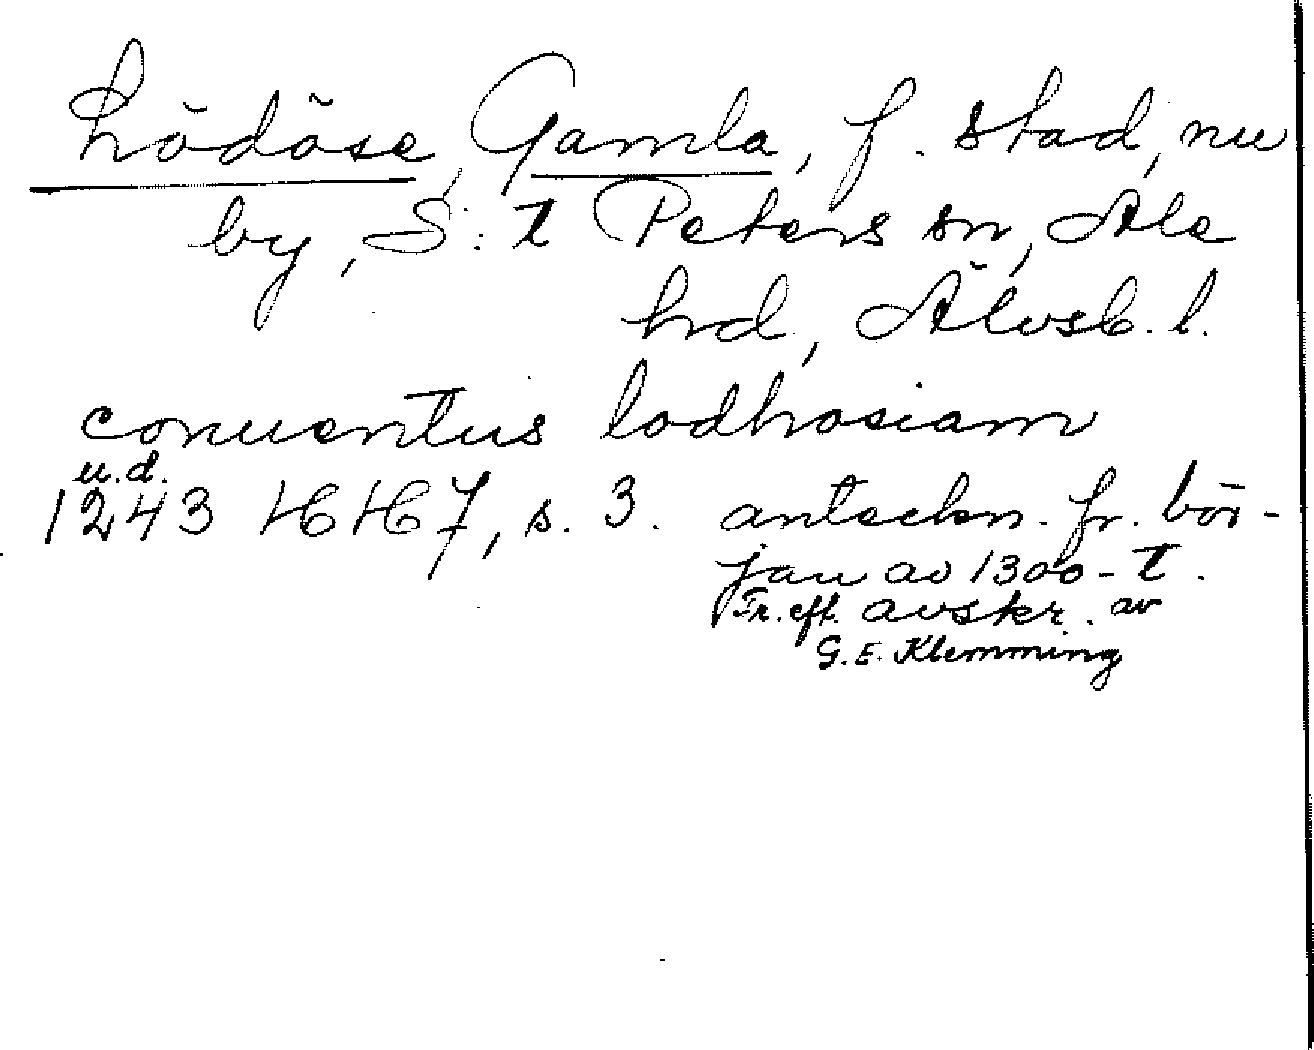 Lödöse, Gamla, f. stad, nu
by, S:t Peters sn, Ale
hd, Älvsb. l.
conuentus lodhosiam
u.d.
1243 HH 7, s. 3. antechn. fr. bör-
jan av 1300-t.
Tr. eft. avskr. av
G.E. Klemming